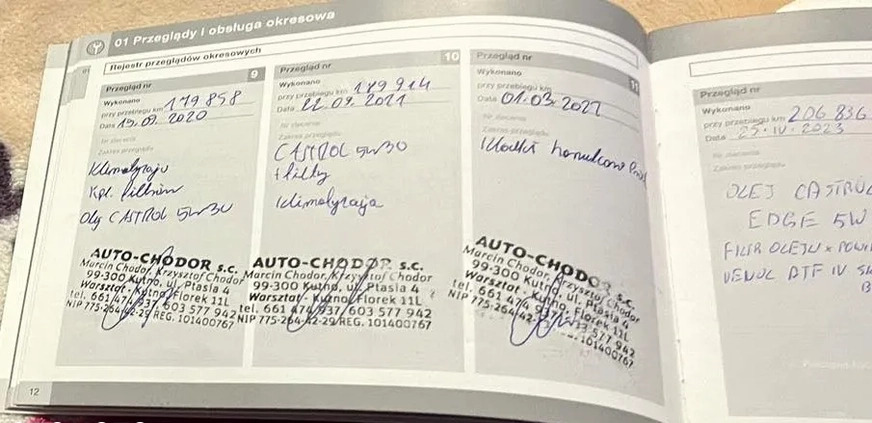 01 Przeglądy i obsługa okresowa
Rejestr przeglądów okresowych
Przegląd nr 9
Wykonano
przy przebiegu km 179 858
Data 15.09.2020
Nr zlecenia
Zakres przeglądu
Kpl. filtrów
Olej CASTROL 5W30
AUTO-CHODOR s.c.
Marcin Chodor, Krzysztof Chodor
99-300 Kutno, ul. Ptasia 4
Warsztat - Kutno, Florek 11L
tel. 661 474 937, 603 577 942
NIP 775-264-42-29 REG. 101400767
12
Przegląd nr 10
Wykonano
przy przebiegu km 189 914
Data 22.09.2021
Nr zlecenia
Zakres przeglądu
CASTROL 5W30
+ filtry
Klimatyzacja
AUTO-CHODOR s.c.
Marcin Chodor, Krzysztof Chodor
99-300 Kutno, ul. Ptasia 4
Warsztat - Kutno, Florek 11L
tel. 661 474 937, 603 577 942
NIP 775-264-42-29 REG. 101400767
Przegląd nr 11
Wykonano
przy przebiegu km
Data 01.03.2022
Nr zlecenia
Zakres przeglądu
Klocki hamulcowe
AUTO-CHODOR s.c.
Marcin Chodor, Krzysztof Chodor
99-300 Kutno, ul. Ptasia 4
Warsztat - Kutno, Florek 11L
tel. 661 474 937, 603 577 942
NIP 775-264-42-29 REG. 101400767
Przegląd nr
Wykonano
przy przebiegu km 206 836
Data 25.IV.2023
Nr zlecenia
Zakres przeglądu
OLEJ CASTROL
EDGE 5W
FILTR OLEJU
VENOL ATF IV